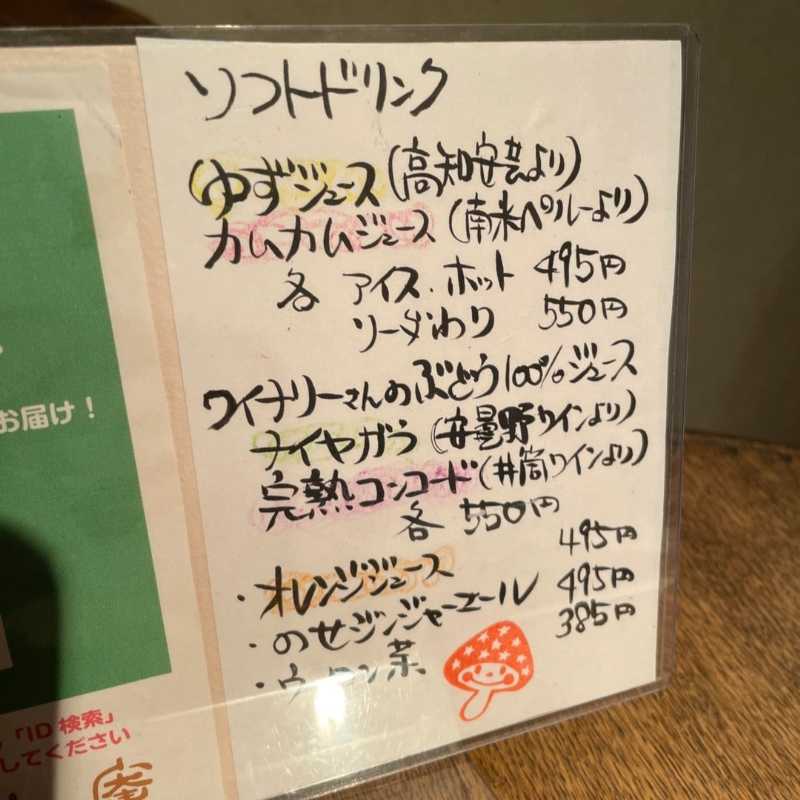 ソフトドリンク
ゆずジュース(高知安芸より)
カムカムジュース(南米ペルーより)
各 アイス.ホット 495円
ソーダわり 550円
ワイナリーさんのぶどう100%ジュース
ナイヤガラ(安曇野ワインより)
完熟コンコード(井筒ワインより)
各 550円
・オレンジジュース 495円
・のせジンジャーエール 495円
・ウーロン茶 385円
お届け!
「ID検索」
してください